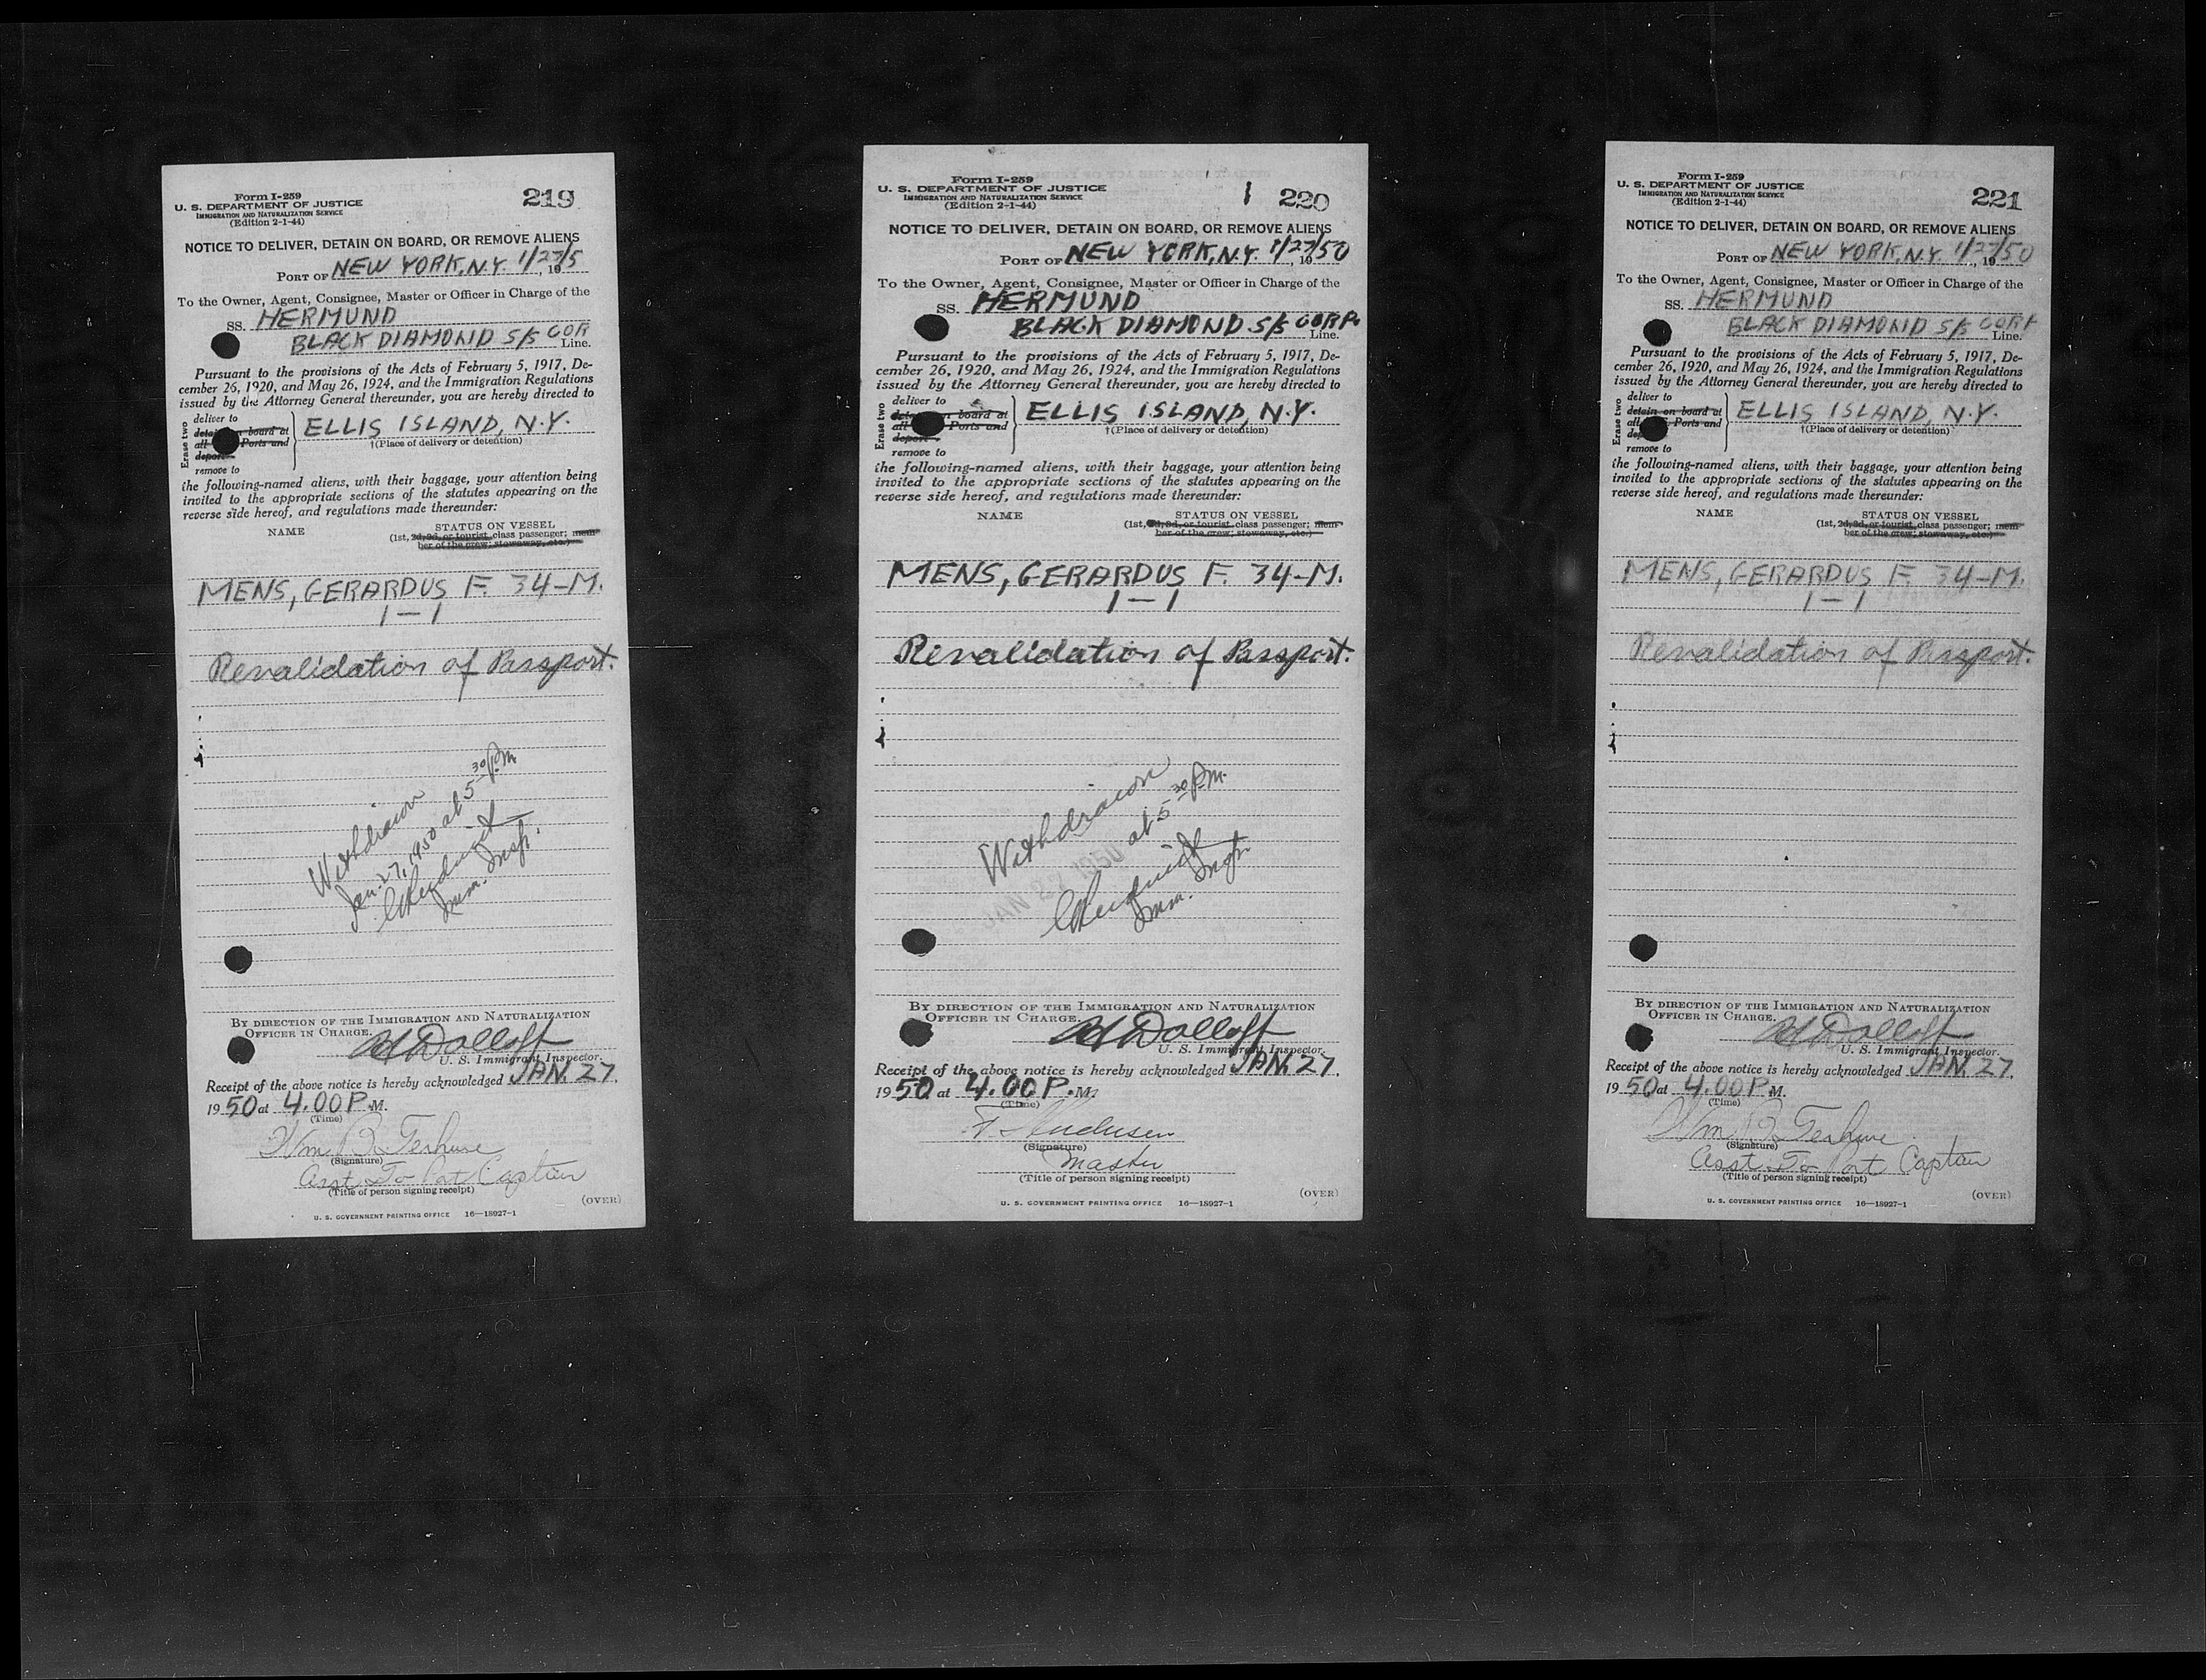 Form I-259
U. S. DEPARTMENT OF JUSTICE
IMMIGRATION AND NATURALIZATION SERVICE
(Edition 2-1-44)
219
NOTICE TO DELIVER, DETAIN ON BOARD, OR REMOVE ALIENS
PORT OF NEW YORK, N.Y. 1/27/5, 19
To the Owner, Agent, Consignee, Master or Officer in Charge of the
SS. HERMUND
BLACK DIAMOND S/S COR
Line.
Pursuant to the provisions of the Acts of February 5, 1917, De-
cember 26, 1920, and May 26, 1924, and the Immigration Regulations
issued by the Attorney General thereunder, you are hereby directed to
Erase two
deliver to
detain on board at
all Ports and
deport
remove to
ELLIS ISLAND, N.Y.
†(Place of delivery or detention)
the following-named aliens, with their baggage, your attention being
invited to the appropriate sections of the statutes appearing on the
reverse side hereof, and regulations made thereunder:
NAME
STATUS ON VESSEL
(1st, 2d, 3d, or tourist class passenger; mem-
ber of the crew; stowaway, etc.)
MENS, GERARDUS F. 34-M.
1 - 1
Revalidation of Passport.
Withdrawn
Jan. 27, 1950 at 5 30 P.m.
Imm. Insp.
BY DIRECTION OF THE IMMIGRATION AND NATURALIZATION
OFFICER IN CHARGE.
Dolloff
U. S. Immigrant Inspector.
Receipt of the above notice is hereby acknowledged JAN. 27.
1950 at 4.00 P.M.
(Time)
Wm. B. Terhune
(Signature)
Asst. To Port Captain
(Title of person signing receipt)
(OVER)
U. S. GOVERNMENT PRINTING OFFICE 16—18927-1
Form I-259
U. S. DEPARTMENT OF JUSTICE
IMMIGRATION AND NATURALIZATION SERVICE
(Edition 2-1-44)
1 220
NOTICE TO DELIVER, DETAIN ON BOARD, OR REMOVE ALIENS
PORT OF NEW YORK, N.Y. 1/27/50, 19
To the Owner, Agent, Consignee, Master or Officer in Charge of the
SS. HERMUND
BLACK DIAMOND S/S CORP.
Line.
Pursuant to the provisions of the Acts of February 5, 1917, De-
cember 26, 1920, and May 26, 1924, and the Immigration Regulations
issued by the Attorney General thereunder, you are hereby directed to
Erase two
deliver to
detain on board at
all Ports and
deport
remove to
ELLIS ISLAND, N.Y.
†(Place of delivery or detention)
the following-named aliens, with their baggage, your attention being
invited to the appropriate sections of the statutes appearing on the
reverse side hereof, and regulations made thereunder:
NAME
STATUS ON VESSEL
(1st, 2d, 3d, or tourist class passenger; mem-
ber of the crew; stowaway, etc.)
MENS, GERARDUS F. 34-M.
1 - 1
Revalidation of Passport.
Withdrawn
JAN 27 1950 at 5 30 P.m.
Imm. Insp.
BY DIRECTION OF THE IMMIGRATION AND NATURALIZATION
OFFICER IN CHARGE.
Dolloff
U. S. Immigrant Inspector.
Receipt of the above notice is hereby acknowledged JAN. 27.
1950 at 4.00 P.M.
(Time)
(Signature)
Master
(Title of person signing receipt)
(OVER)
U. S. GOVERNMENT PRINTING OFFICE 16—18927-1
Form I-259
U. S. DEPARTMENT OF JUSTICE
IMMIGRATION AND NATURALIZATION SERVICE
(Edition 2-1-44)
221
NOTICE TO DELIVER, DETAIN ON BOARD, OR REMOVE ALIENS
PORT OF NEW YORK, N.Y. 1/27/50, 19
To the Owner, Agent, Consignee, Master or Officer in Charge of the
SS. HERMUND
BLACK DIAMOND S/S CORP
Line.
Pursuant to the provisions of the Acts of February 5, 1917, De-
cember 26, 1920, and May 26, 1924, and the Immigration Regulations
issued by the Attorney General thereunder, you are hereby directed to
Erase two
deliver to
detain on board at
all Ports and
deport
remove to
ELLIS ISLAND, N.Y.
†(Place of delivery or detention)
the following-named aliens, with their baggage, your attention being
invited to the appropriate sections of the statutes appearing on the
reverse side hereof, and regulations made thereunder:
NAME
STATUS ON VESSEL
(1st, 2d, 3d, or tourist class passenger; mem-
ber of the crew; stowaway, etc.)
MENS, GERARDUS F. 34-M.
1 - 1
Revalidation of Passport.
BY DIRECTION OF THE IMMIGRATION AND NATURALIZATION
OFFICER IN CHARGE.
Dolloff
U. S. Immigrant Inspector.
Receipt of the above notice is hereby acknowledged JAN. 27.
1950 at 4.00 P.M.
(Time)
Wm. B. Terhune
(Signature)
Asst. To Port Captain
(Title of person signing receipt)
(OVER)
U. S. GOVERNMENT PRINTING OFFICE 16—18927-1